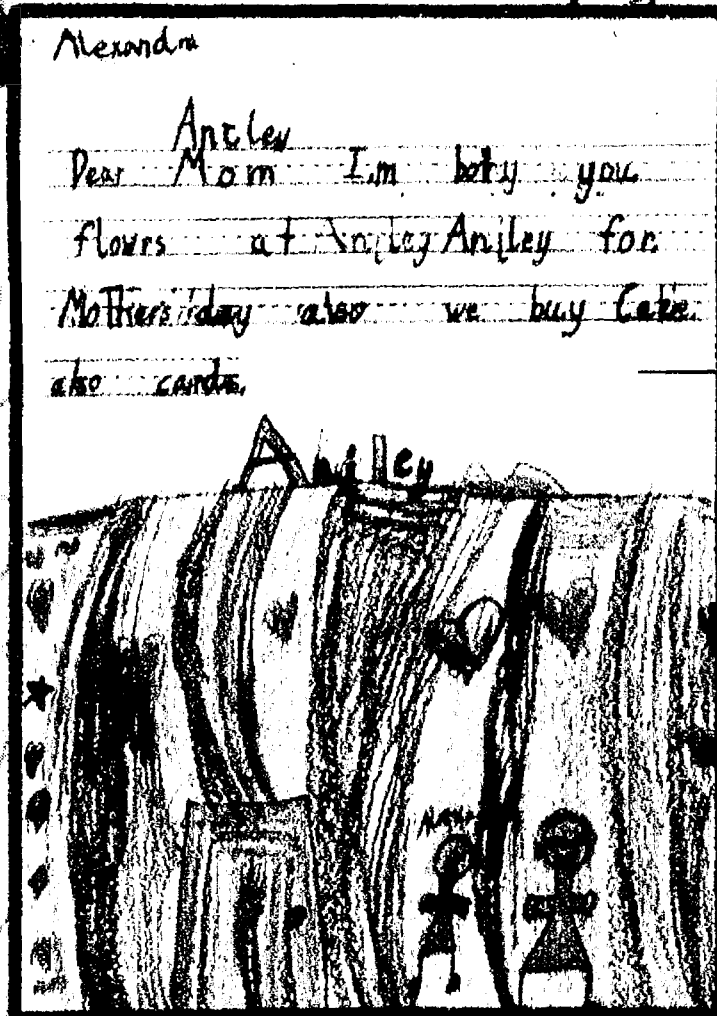 Alexandra
Antley
Dear Mom I.m boty you
flowrs at Aniley Aniley for
Mothers day also we buy Cake.
also cards.
Aniley